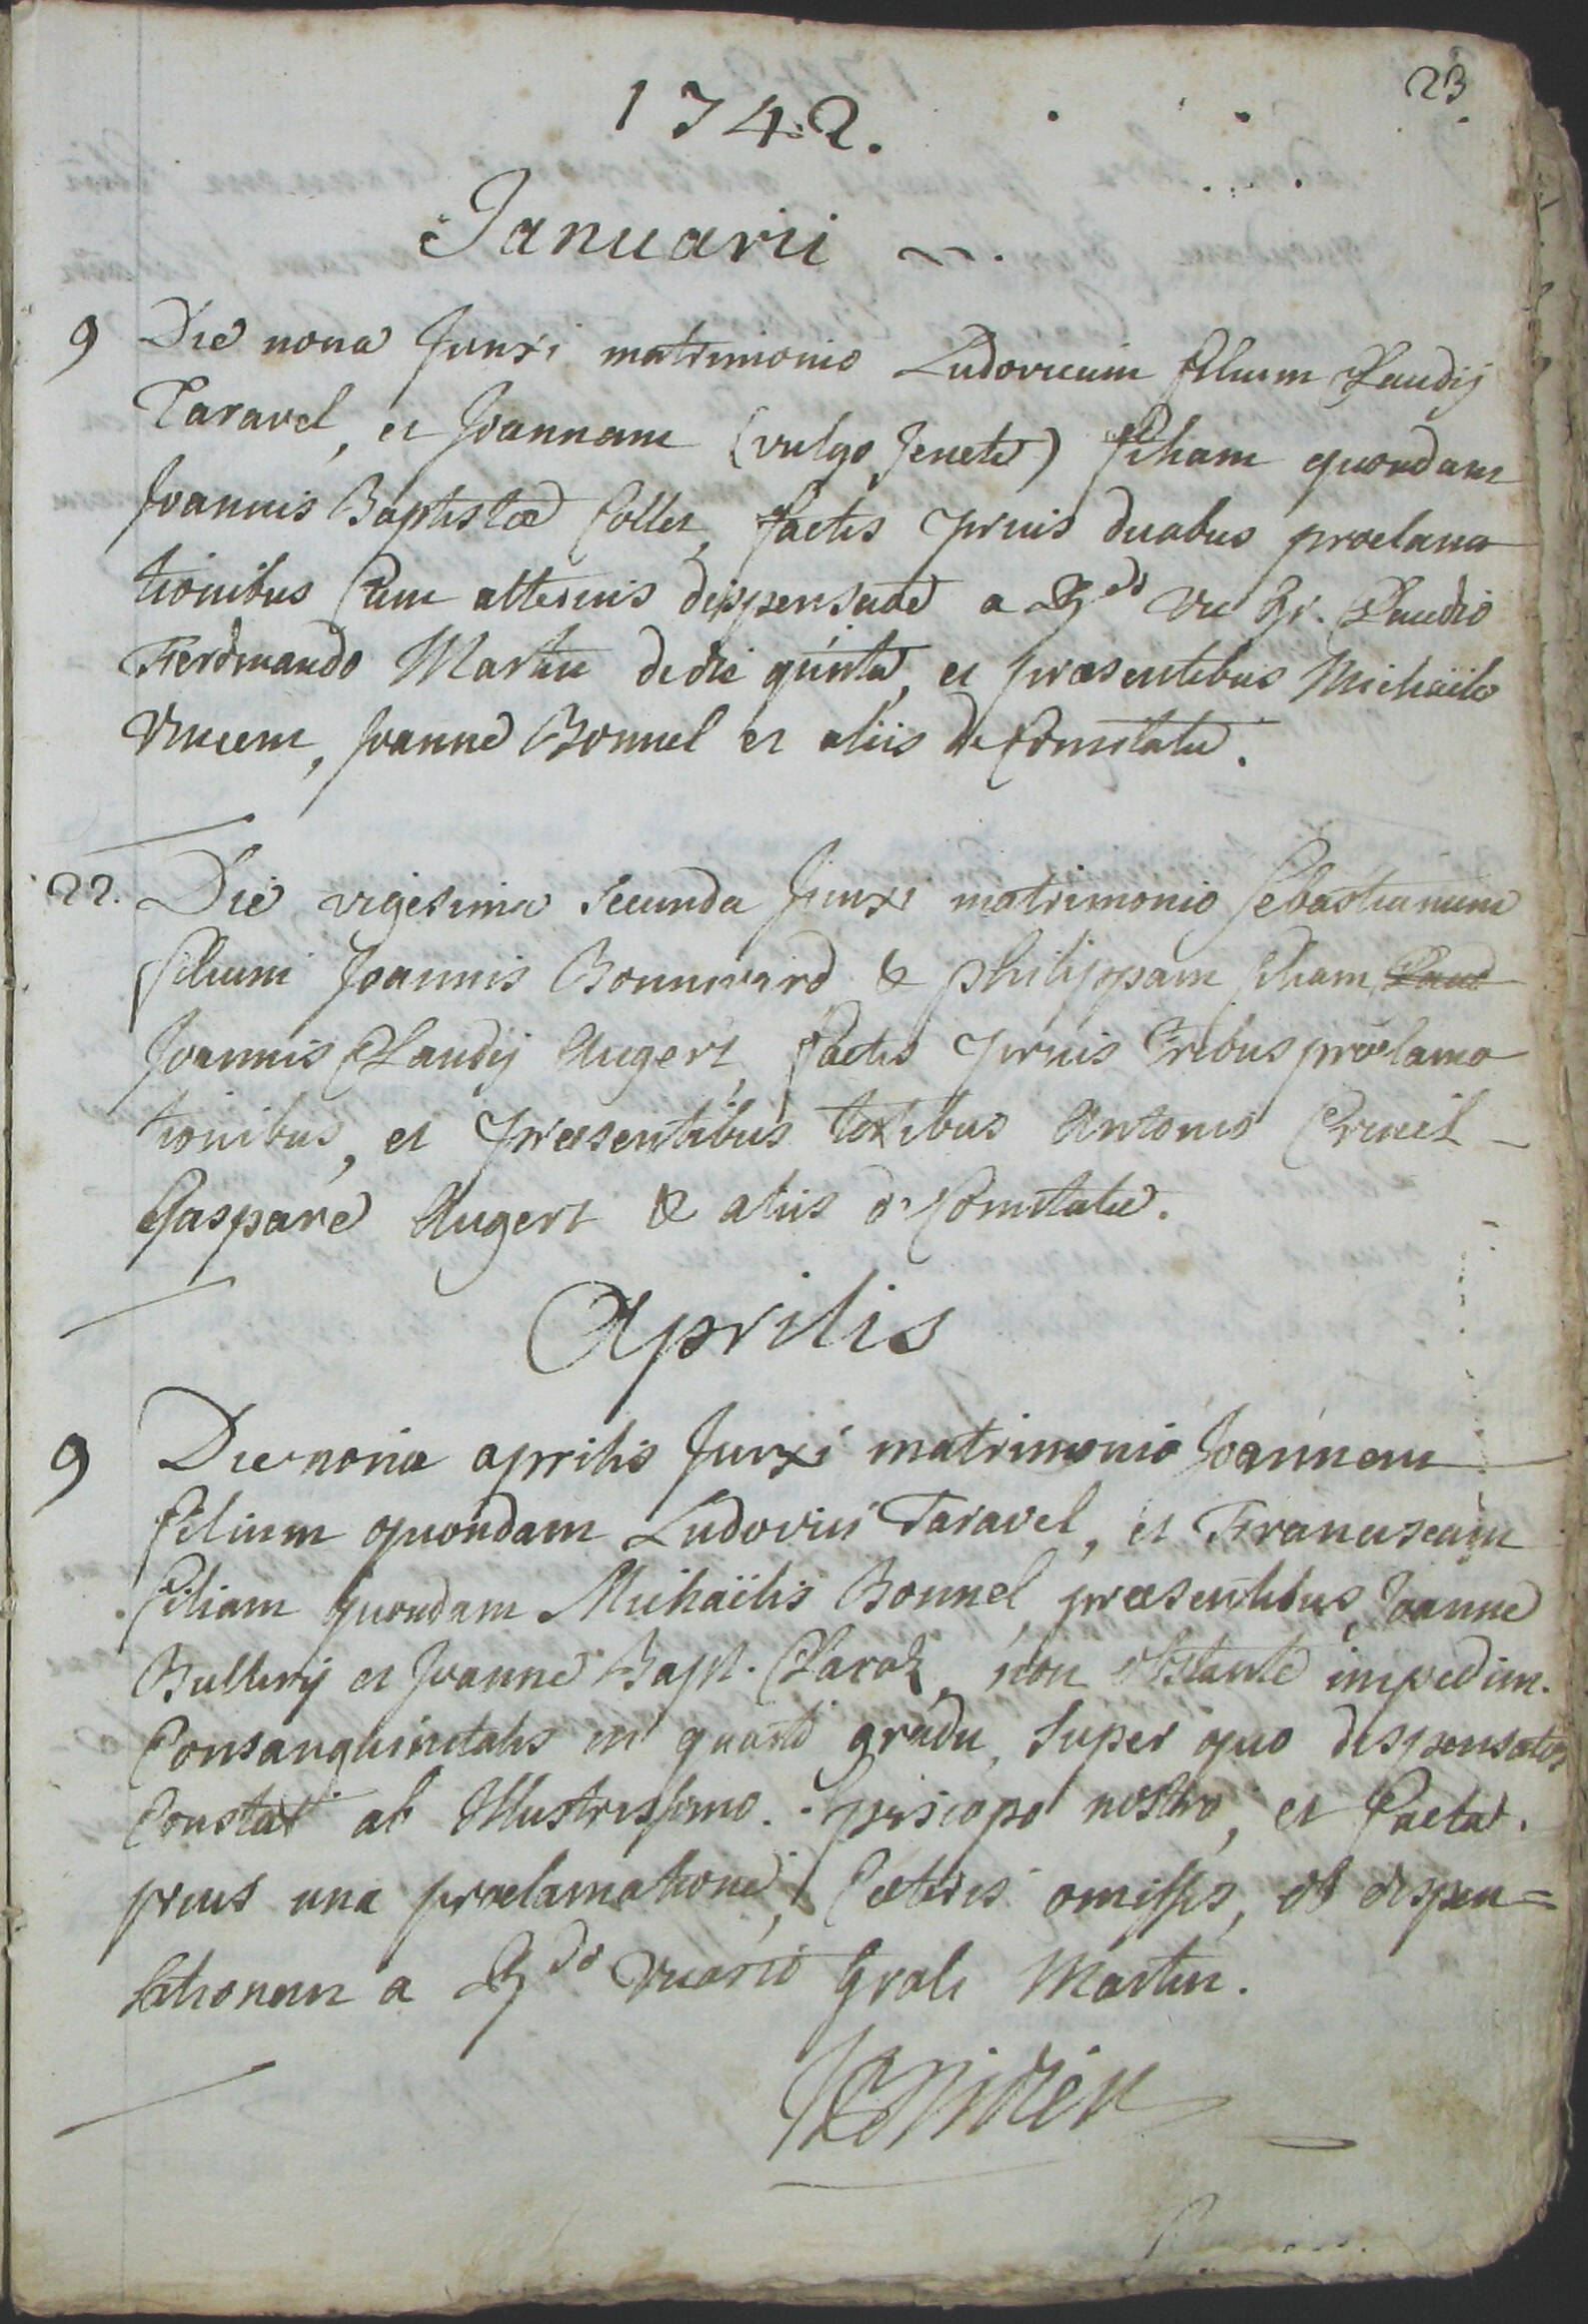 23
1742.
Januarii
9 Die nona Junxi matrimonio Ludovicum filium Claudij
Taravel, et Joannam (vulgo Jenete) filiam quondam
Joannis Baptistæ Collet, factis prius duabus proclama
tionibus Cum alterius dispensatione a Rdo Vic Gr. Claudio
Ferdinando Martin de die quinta, et præsentibus Michaële
Vincem, Joanne Bonnel et aliis de Comitatu.
22. Die vigesima secunda Junxi matrimonio Sebastianum
filium Joannis Bonnivard & philippam filiam
Joannis Claudij Augert, factis prius Tribus proclama
tionibus, et præsentibus testibus Antonio Cruel
Gaspare Augert & aliis de Comitatu.
Aprilis
9 Die nona aprilis Junxi matrimonio Joannem
filium quondam Ludovici Taravel, et Franciscam
filiam quondam Michaëlis Bonnel præsentibus, Joanne
et Joanne Bapt. Claraz, non obstante impedim.
Consanguinitatis in quarto gradu, super quo dispensatos
Constat ab Illustrissimo. Episcopo nostro, et facta
prius una proclamatione, Cæteris omissis, ob dispen=
sationem a Rdo Vicario Grali Martin.